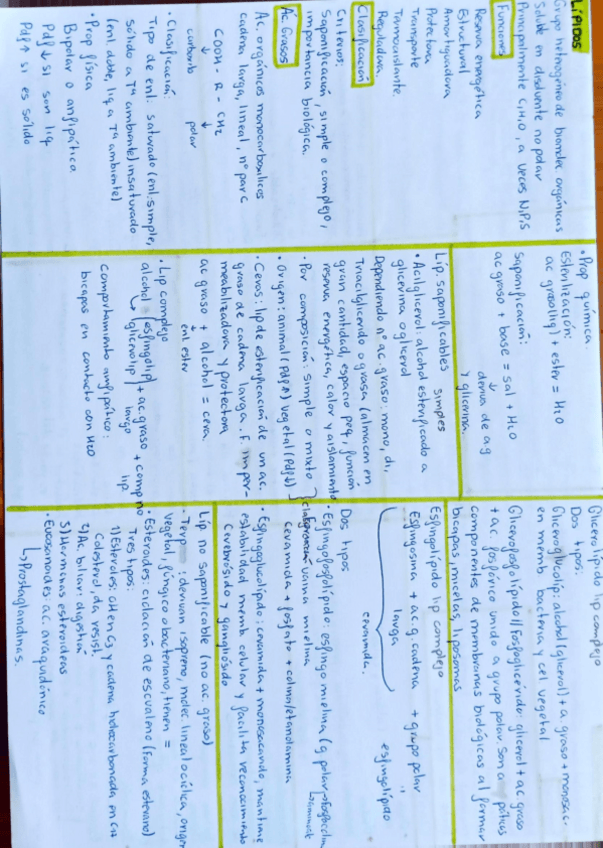 LÍPIDOS
Grupo heterogéneo de biomoléc orgánicas
Soluble en disolvente no polar
Principalmente C,H,O, a veces N,P,S
Funciones
Reserva energética
Estructural
Amortiguadora
Protectora
Transporte
Termoaislante
Reguladora
Clasificación
Criterios:
Saponificación, simple o complejo,
importancia biológica.
Ác. Grasos
Ac. orgánicos monocarboxílicos
cadena larga, lineal, nº par C
COOH - R - CH2
carboxilo polar
· Clasificación:
Tipo de enl. saturado (enl. simple,
sólido a Tª ambiente) insaturado
(enl. doble, liq a Tª ambiente)
· Prop física
Bipolar o anfipático
Pdf ↓ si son liq
Pdf ↑ si es sólido
· Prop química
Esterilización:
ac graso (liq) + ester = H2O
Saponificación:
ac graso + base = sal + H2O
deriva de ag
y glicerina.
Lip. saponificables simples
· Acilglicerol: alcohol esterificado a
glicerina o glicerol
Dependiendo nº ac. graso: mono, di,
Triacilglicerido o grasa (almacen en
gran cantidad, espacio peq, función
reserva energética, calor y aislamiento
· Por composición: simple o mixto
· Origen: animal (Pdf ↑) vegetal (Pdf ↓)
· Ceras: lip de esterificación de un ac.
graso de cadena larga. F. imper-
meabilizadora y protectora
ac graso + alcohol = cera.
enl ester
· Lip complejo
alcohol (esfingolip / glicerolip) + ac graso largo + comp no lip.
Comportamiento anfipático:
bicapas en contacto con H2O
Glicerolípido lip complejo
Dos tipos:
Gliceroglucolip: alcohol (glicerol) + a graso + monosac.
en memb bacteria y cel vegetal
Glicerofosfolípido // Fosfoglicérido: glicerol + ac graso
+ ac. fosfórico unido a grupo polar. Son
componentes de membranas biológicas al formar
bicapas, micelas, liposomas
Esfingolípido lip complejo
Esfingosina + ac. g. cadena larga + grupo polar = esfingolípido
ceramida.
Dos tipos
· Esfingofosfolípido: esfingomielina (g polar
vaina mielina
ceramida + fosfato + colina/etanolamina
· Esfingoglucolípido: ceramida + monosacarido, mantiene
estabilidad memb celular y facilita reconocimiento
Cerebrósido y gangliósido
Lip no saponificable (no ac. graso)
· Terpeno: derivan isopreno, molec lineal o cíclica, origen
vegetal, fúngico o bacteriano, tienen =
· Esteroides: ciclación de escualeno (forma esterano)
Tres tipos:
1) Esteroles: OH en C3 y cadena hidrocarbonada en C17
Colesterol, da resist
2) Ac. biliar: digestión
3) Hormonas esteroideas
· Eucosanoides: ac. araquidónico
↳ Prostaglandinas.